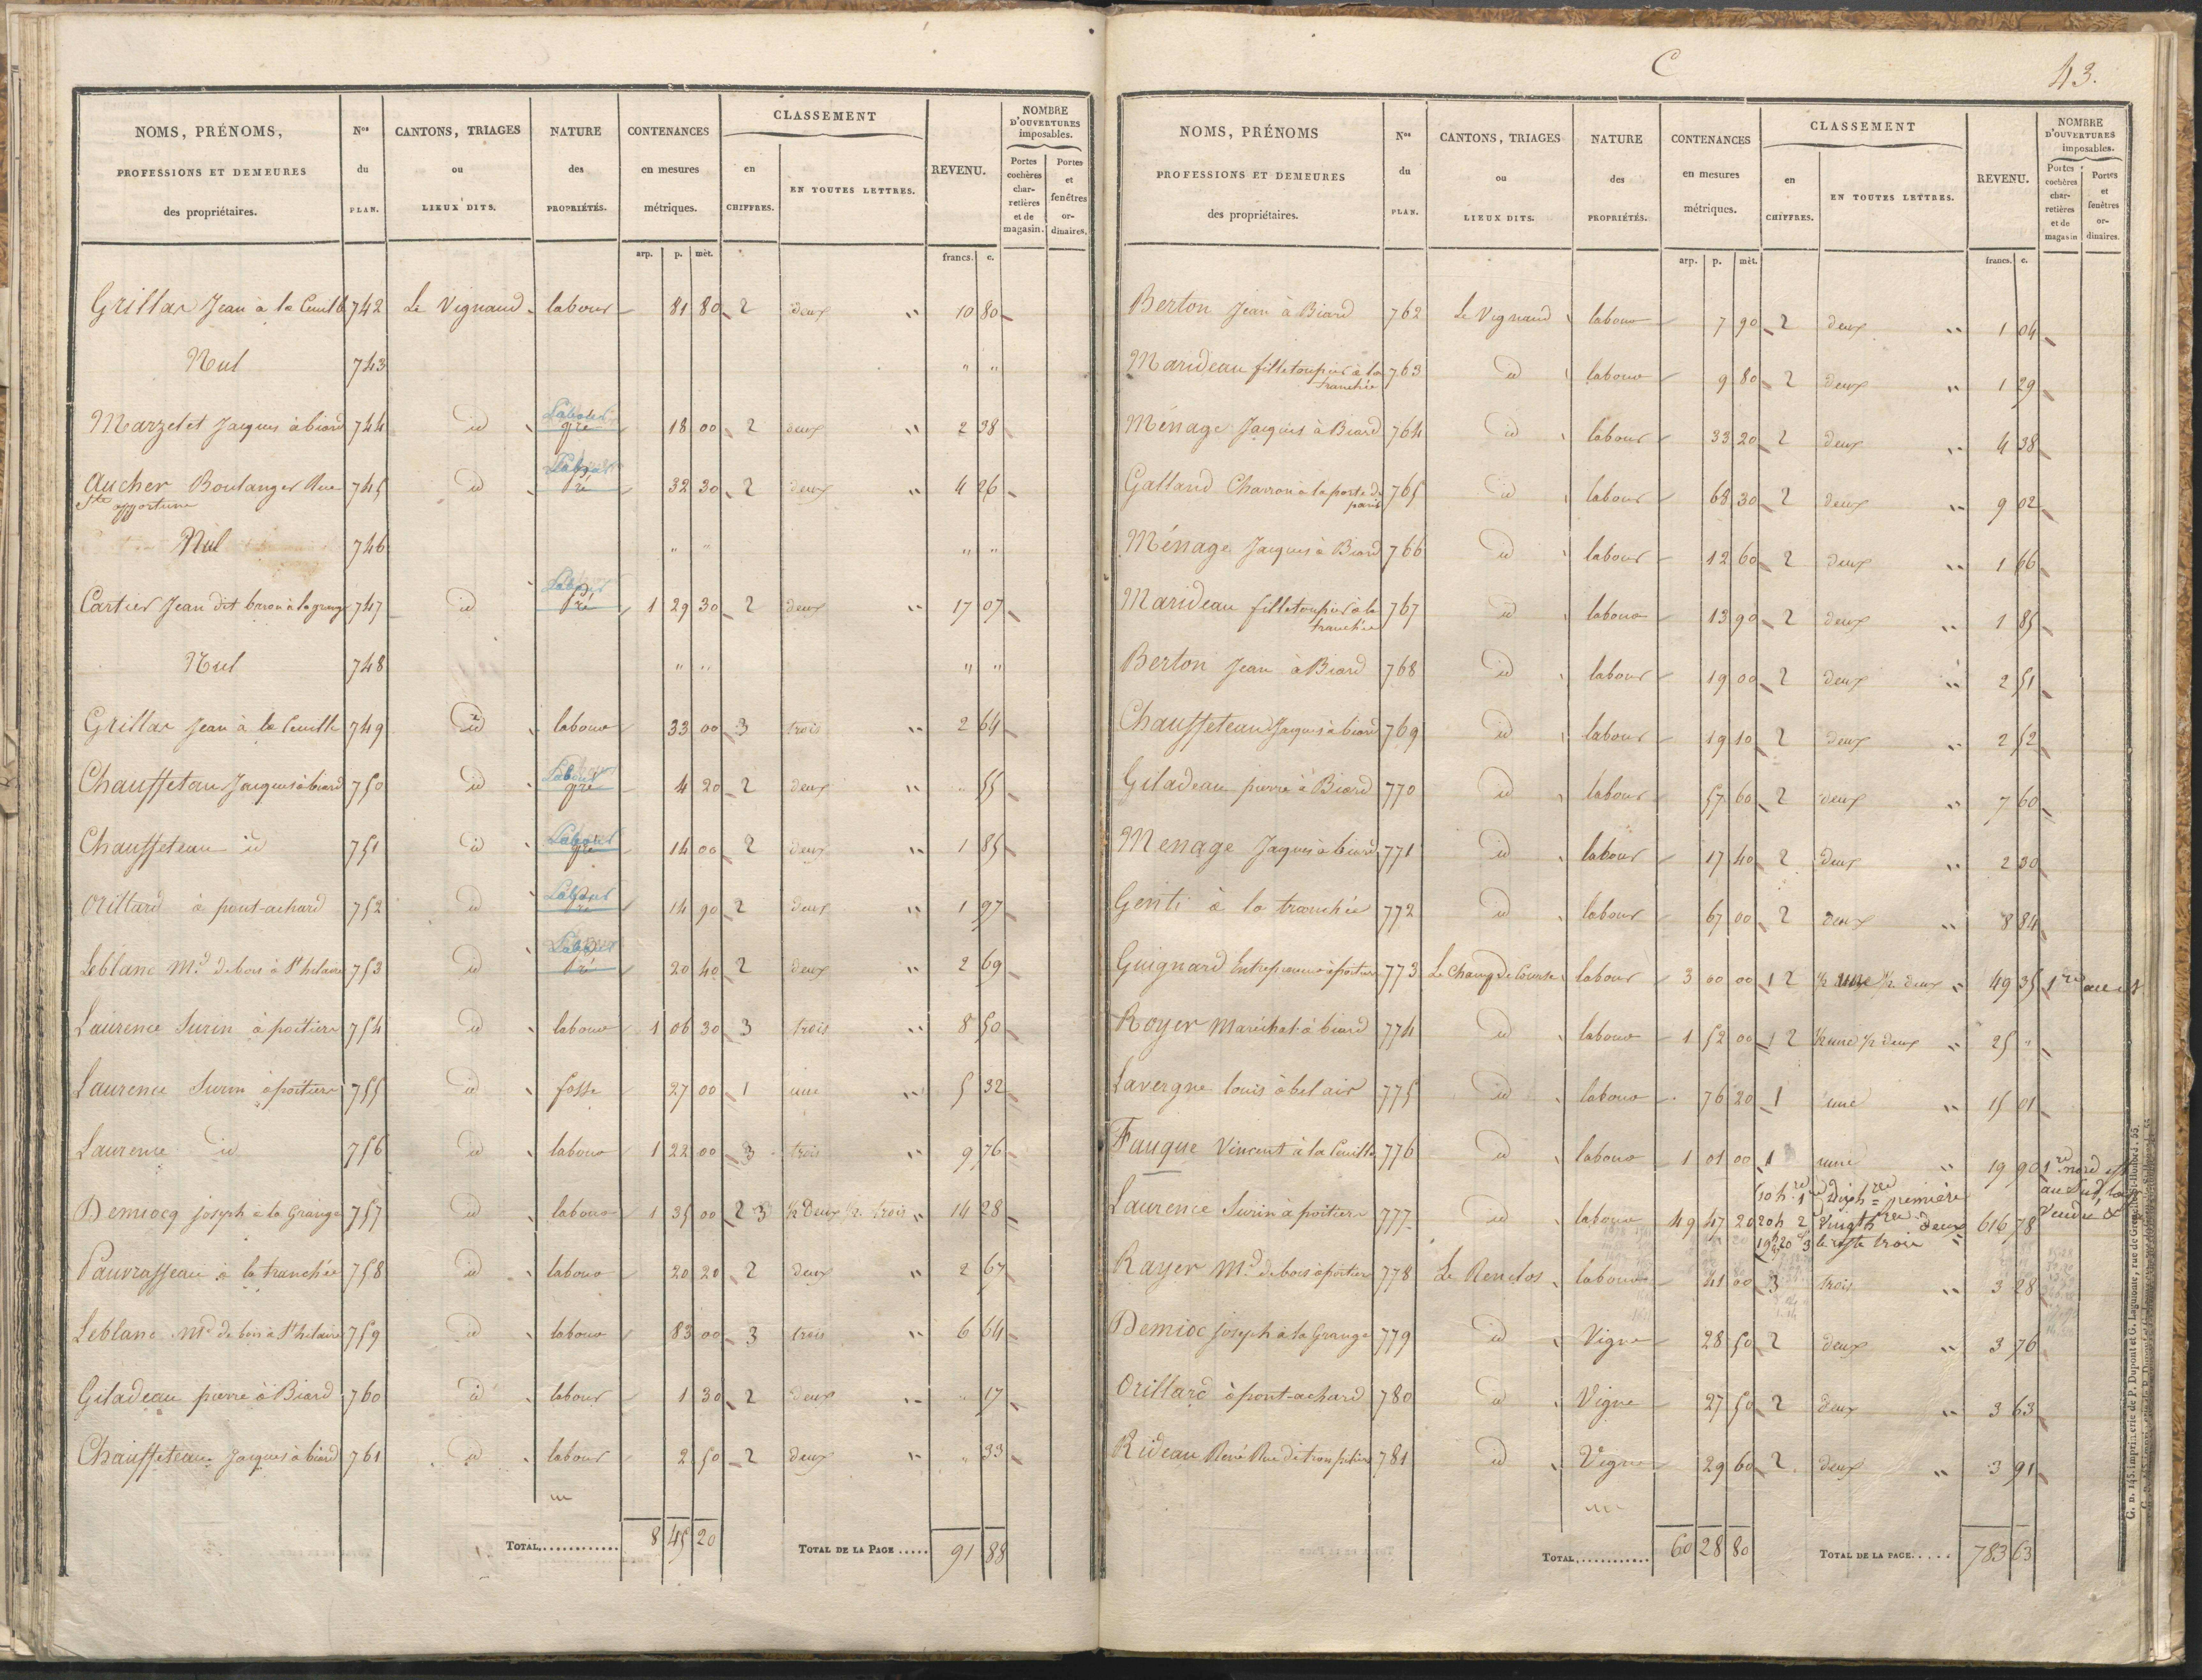 C
43.
NOMS, PRÉNOMS, PROFESSIONS ET DEMEURES des propriétaires. Nos du PLAN. CANTONS, TRIAGES ou LIEUX DITS. NATURE des PROPRIÉTÉS. CONTENANCES en mesures métriques. CLASSEMENT en CHIFFRES. EN TOUTES LETTRES. REVENU. NOMBRE D'OUVERTURES imposables. Portes cochères charretières et de magasin. Portes et fenêtres ordinaires.
arp. p. mèt. francs. c.
Grillar Jean à la Cueille 742 Le Vignaud labour 81 80 2 deux " 10 80
Nul 743 " "
Marzelet Jacques à biard 744 id Labour pré 18 00 2 deux " 2 38
Aucher Boulanger Rue Ste opportune 745 id Labour Pré 32 30 2 deux " 4 26
Nul 746 " " " "
Cartier Jean dit baron à la grange 747 id Labour Pré 1 29 30 2 deux " 17 07
Nul 748 " " " "
Grillar Jean à la Cueille 749 id labour 33 00 3 trois " 2 64
Chauffeteau Jacques à biard 750 id Labour pré 4 20 2 deux " " 55
Chauffeteau id 751 id Labour pré 14 00 2 deux " 1 85
Orillard à pont-achard 752 id Labour Pré 14 90 2 deux " 1 97
Leblanc Md de bois à St hilaire 753 id Labour Pré 20 40 2 deux " 2 69
Laurence Surin à poitiers 754 id labour 1 06 30 3 trois " 8 50
Laurence Surin à poitiers 755 id fosse 27 00 1 une " 5 32
Laurence id 756 id labour 1 22 00 3 trois " 9 76
Demiocq joseph à la Grange 757 id labour 1 35 00 2 3 ½ Deux ½ trois " 14 28
Pauvrasseau à la tranchée 758 id labour 20 20 2 deux " 2 67
Leblanc Md de bois à St hilaire 759 id labour 83 00 3 trois " 6 64
Giladeau pierre à Biard 760 id labour 1 30 2 deux " " 17
Chauffeteau Jacques à biard 761 id labour 2 50 2 deux " " 33
TOTAL............ 8 45 20 TOTAL DE LA PAGE ..... 91 88
NOMS, PRÉNOMS PROFESSIONS ET DEMEURES des propriétaires. Nos du PLAN. CANTONS, TRIAGES ou LIEUX DITS. NATURE des PROPRIÉTÉS. CONTENANCES en mesures métriques. CLASSEMENT en CHIFFRES. EN TOUTES LETTRES. REVENU. NOMBRE D'OUVERTURES imposables. Portes cochères charretières et de magasin Portes et fenêtres ordinaires.
arp. p. mèt. francs. c.
Berton Jean à Biard 762 Le Vignaud labour 7 90 2 deux " 1 04
Marideau fille à la tranchée 763 id labour 9 80 2 deux " 1 29
Ménage Jacques à Biard 764 id labour 33 20 2 deux " 4 38
Galland Charron à la porte de paris 765 id labour 68 30 2 deux " 9 02
Ménage Jacques à Biard 766 id labour 12 60 2 deux " 1 66
Marideau fille à la tranchée 767 id labour 13 90 2 deux " 1 85
Berton Jean à Biard 768 id labour 19 00 2 deux " 2 51
Chauffeteau Jacques à biard 769 id labour 19 10 2 deux " 2 52
Giladeau pierre à Biard 770 id labour 57 60 2 deux " 7 60
Menage Jacques à biard 771 id labour 17 40 2 deux 2 30
Genti à la tranchée 772 id labour 67 00 2 deux " 8 84
Guignard Entrepreneur à poitiers 773 Le Champ de Course labour 3 00 00 1 2 ½ une ½ deux " 49 35 1re
Royer Maréchal à biard 774 id labour 1 52 00 1 2 ½ une ½ deux " 25 "
Lavergne louis à bel air 775 id labour 76 20 1 une " 15 01
Fauque Vincent à la Cueille 776 id labour 1 01 00 1 une " 19 90 1re nord
Laurence Surin à poitiers 777 id labour 49 47 20 10h 1re dix h première 20h 2 vingt h deux 19h 3 le reste trois 616 78 au Sud,
Rayer Md de bois à poitiers 778 Le Renclos labour 41 00 3 trois " 3 28
Demioc joseph à la Grange 779 id Vigne 28 50 2 deux " 3 76
Orillard à pont-achard 780 id Vigne 27 50 2 deux " 3 63
Rideau René Rue 781 id Vigne 29 60 2 deux " 3 91
TOTAL............ 60 28 80 TOTAL DE LA PAGE..... 783 63